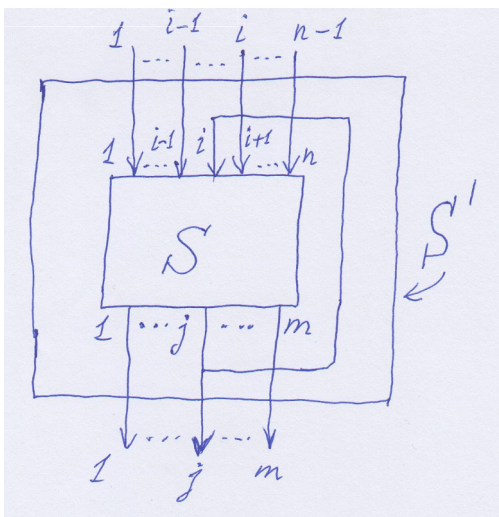 1 ... i-1 ... i ... n-1
1 ... i-1 i i+1 ... n
S
S'
1 ... j ... m
1 ... j ... m